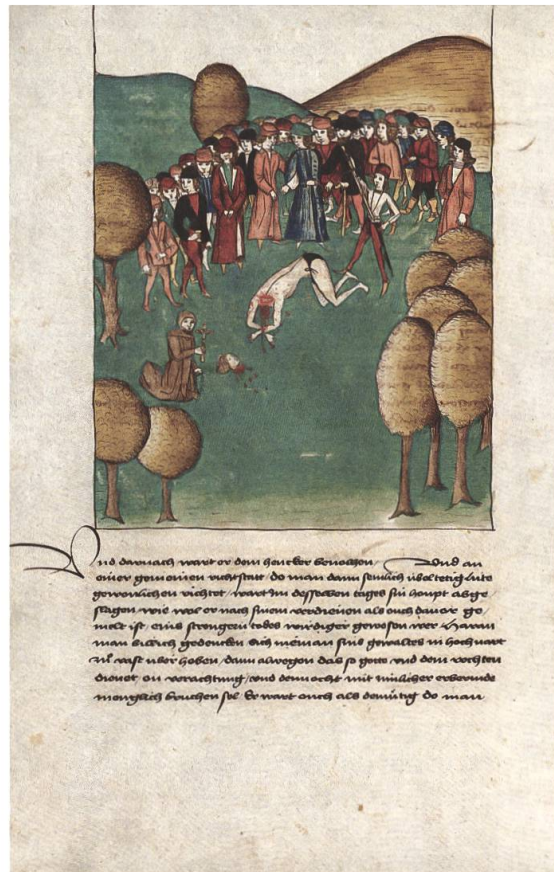 Und darnach wart er dem hencker bevolchen / Und an
einer gemeinen richtstatt / do man dann semlich úbeltetig lúte
gewonlichen richtet / wart im desselben tages sin houpt abge
slagen / wie wol er nach sinem verdienen als ouch davor ge
melt ist / eins strengern todes wirdiger gewesen wer / Haran
man billich gedencken sich nieman sins gewaltes in hochvart
zů vast úber heben / dann alwegen das so gotte und dem rechten
dienet / on verachtung / und dennocht mit
menglich bruchen sol Er wart ouch als demůtig do man